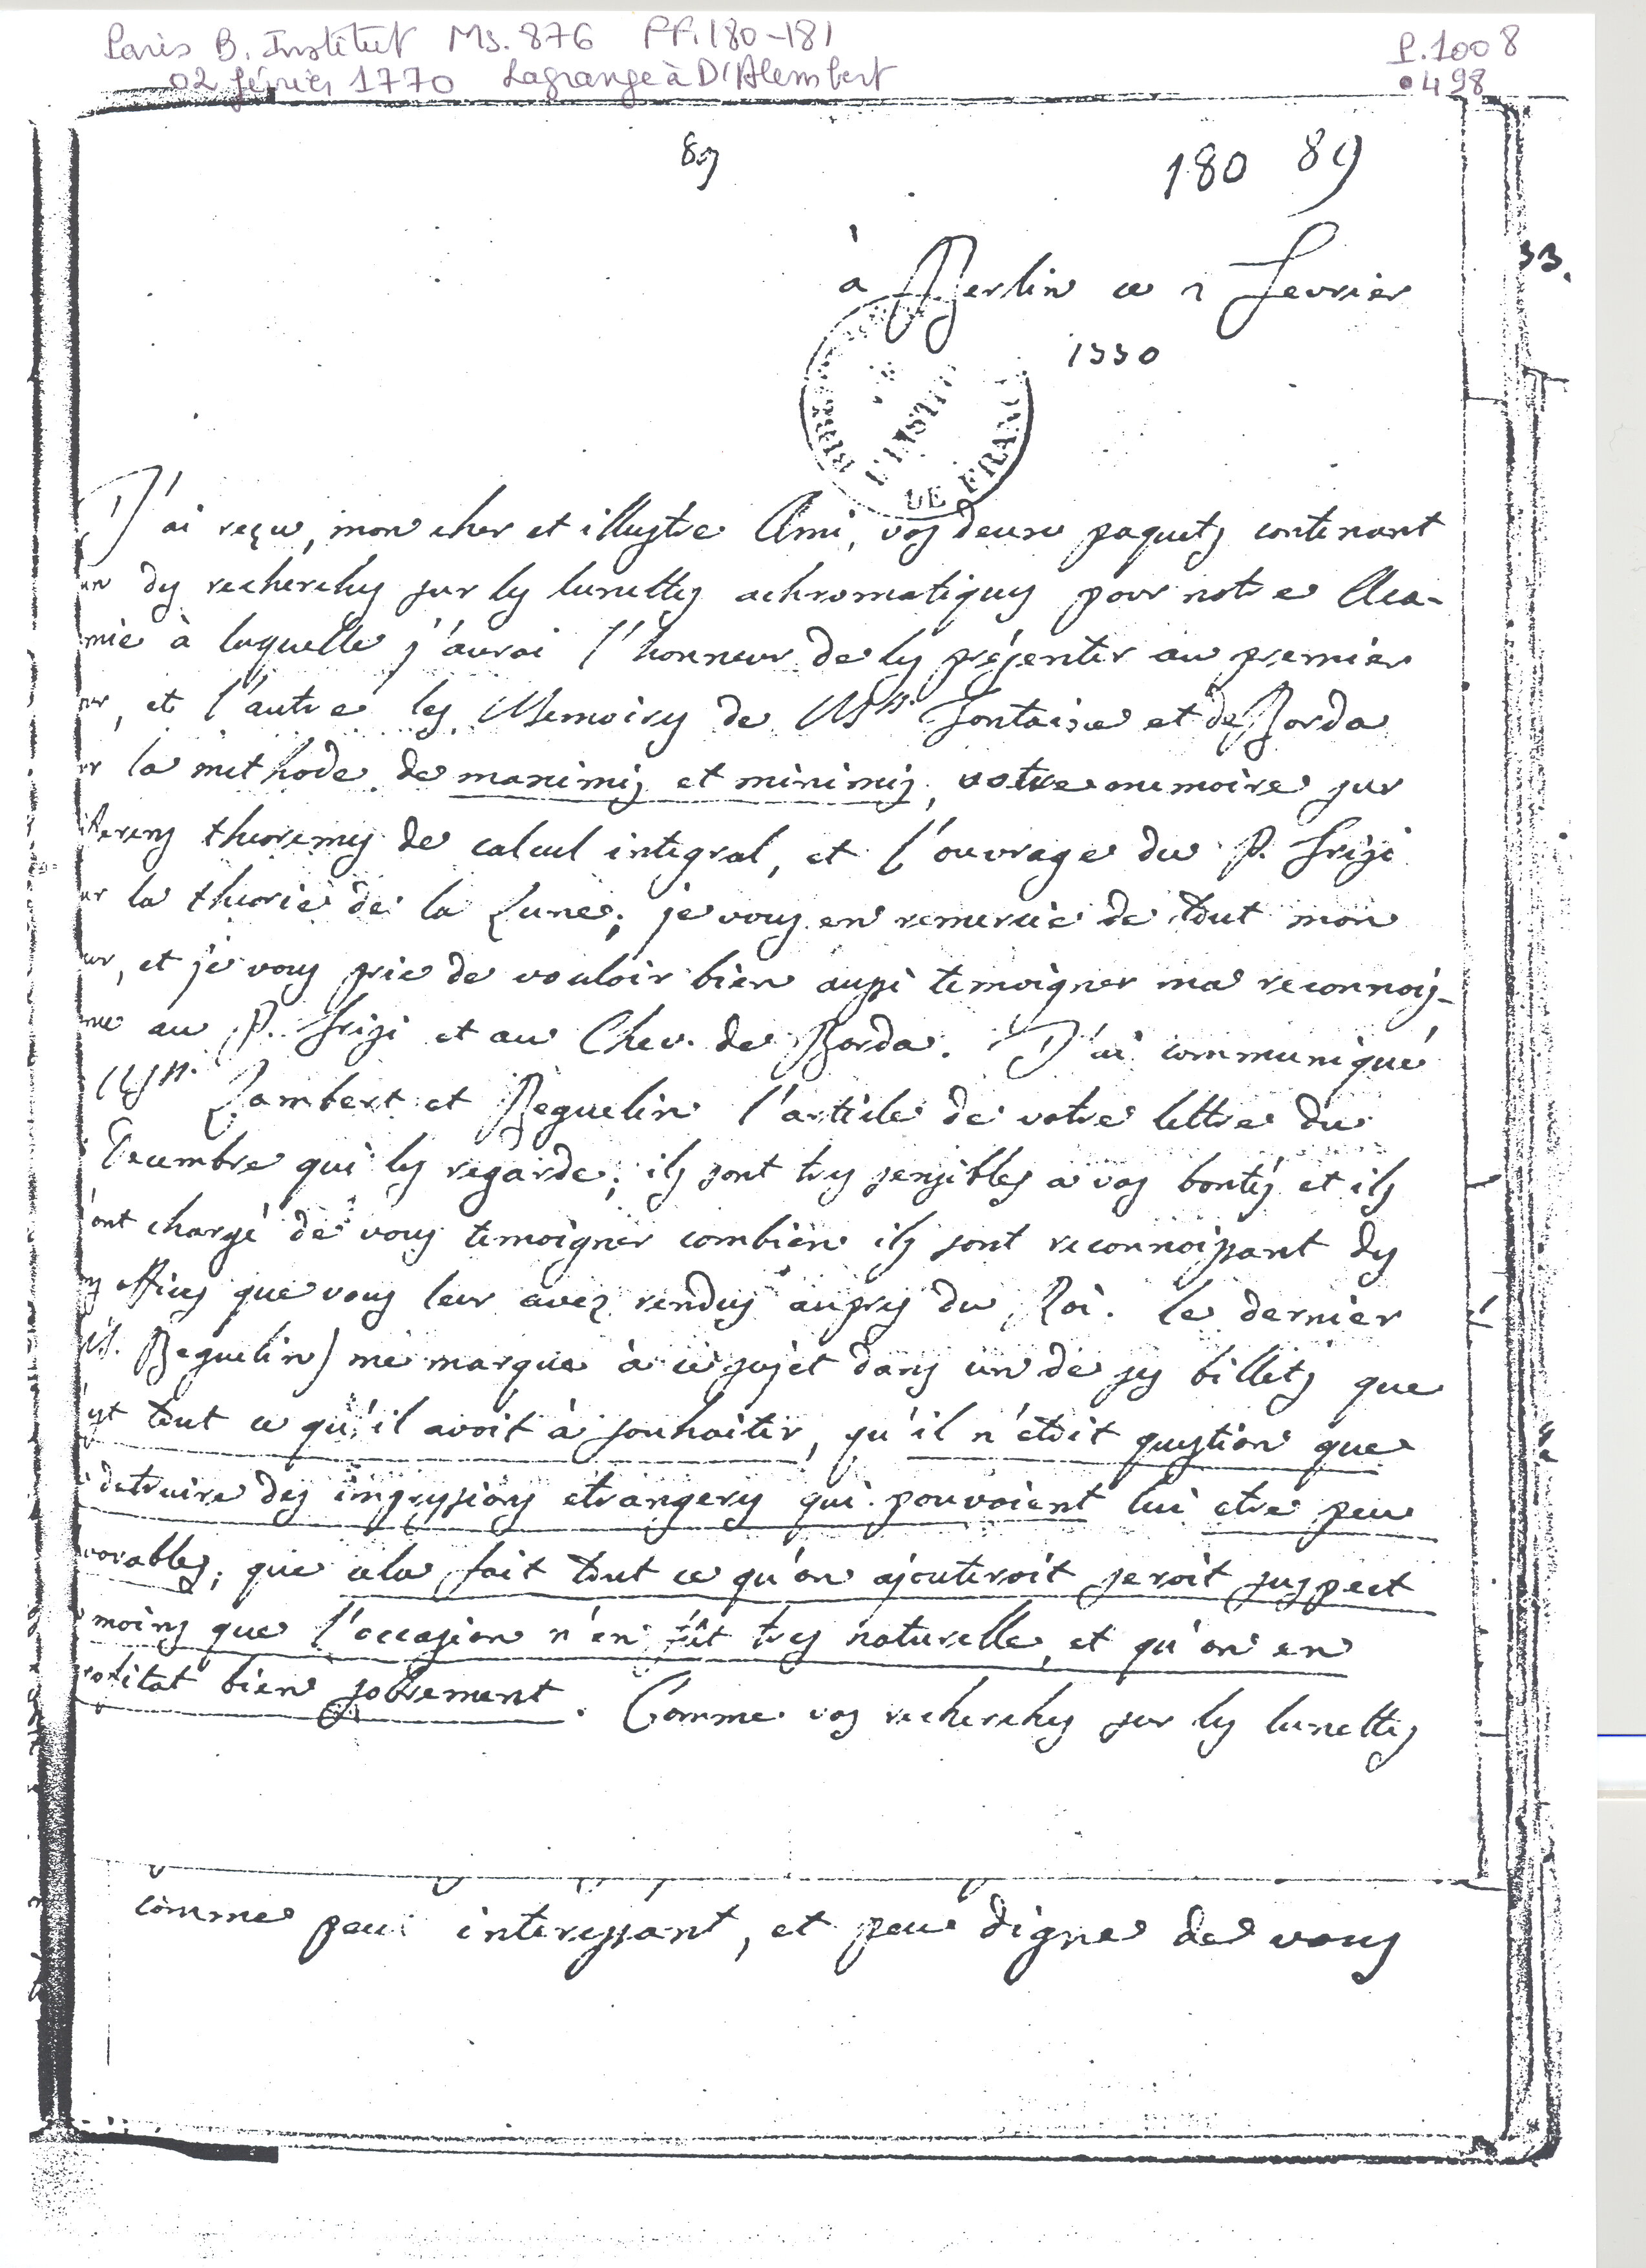 Paris B. Institut Ms. 876 ff. 180-181
P. 1008
02 février 1770 Lagrange à D'Alembert
•498
89
180 89
à Berlin ce 2 Fevrier
1770
BIBL
L'INSTIT
DE FRANC
J'ai reçu, mon cher et illustre Ami, vos deux paquets contenant
un des recherches sur les lunettes achromatiques pour notre Aca-
mie à laquelle j'aurai l'honneur de les présenter au premier
et l'autre les Memoires de Mrs. Fontaine et de Borda
ur la methode de maximis et minimis, votre memoire sur
fferens theoremes de calcul integral, et l'ouvrage du P. Frisi
ur la theorie de la Lune; je vous en remercie de tout mon
ur, et je vous prie de vouloir bien aussi temoigner ma reconnois-
nce au P. Frisi et au Chev. de Borda. J'ai communiqué
Mrs. Lambert et Beguelin l'article de votre lettre du
Decembre qui les regarde; ils sont tres sensibles a vos bontés et ils
'ont chargé de vous temoigner combien ils sont reconnoissant des
ns offices que vous leur avez rendus aupres du Roi. le dernier
M. Beguelin) me marque à ce sujet dans un de ses billets que
'est tout ce qu'il avoit à souhaiter, qu'il n'étoit question que
detruire des impressions etrangeres qui pouvoient lui etre peu
vorables; que cela fait tout ce qu'on ajouteroit seroit suspect
moins que l'occasion n'en fût tres naturelle, et qu'on en
rofitat bien sobrement. Comme vos recherches sur les lunettes
comme peu interessant, et peu digne de vous